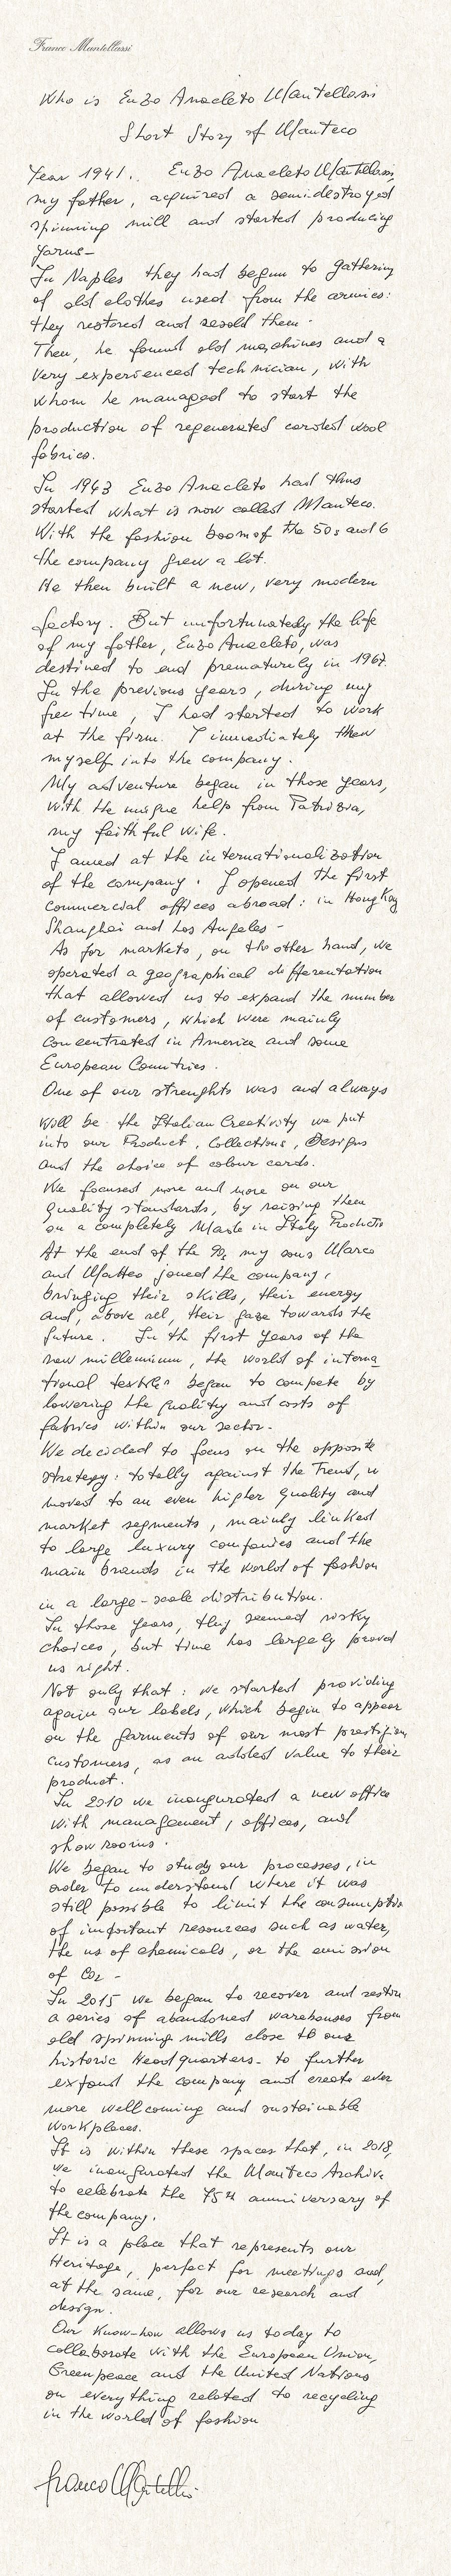 Franco Mantellassi
Who is Enzo Anacleto Mantellassi
Short Story of Manteco
Year 1941. Enzo Anacleto Mantellassi,
my father, acquired a semidestroyed
spinning mill and started producing
yarns-
In Naples they had begun to gathering
of old clothes used from the armies:
they restored and resold them-
Then, he found old machines and a
very experienced technician, with
whom he managed to start the
production of regenerated carded wool
fabrics.
In 1943 Enzo Anacleto had thus
started what is now called Manteco.
With the fashion boom of the 50s and 6
the company grew a lot.
He then built a new, very modern
factory. But unfortunately the life
of my father, Enzo Anacleto, was
destined to end prematurely in 1967.
In the previous years, during my
free time, I had started to work
at the firm. I immediately threw
myself into the company.
My adventure began in those years,
with the unique help from Patrizia,
my faithful wife.
I aimed at the internationalization
of the company. I opened the first
commercial offices abroad: in Hong Kong
Shanghai and Los Angeles-
As for markets, on the other hand, we
operated a geographical differentation
that allowed us to expand the number
of customers, which were mainly
concentrated in America and some
European Countries.
One of our strenghts was and always
will be the Italian Creativity we put
into our Product, Collections, Designs
and the choice of colour cards.
We focused more and more on our
quality standards, by raising them
on a completely Made in Italy Productio
At the end of the 90s my sons Marco
and Matteo joined the company,
bringing their skills, their energy
and, above all, their gaze towards the
future. In the first years of the
new millennium, the world of interna
tional textile began to compete by
lowering the quality and costs of
fabrics within our sector-
We decided to focus on the opposite
strategy: totally against the Trend, w
moved to an even higher quality and
market segments, mainly linked
to large luxury companies and the
main brands in the world of fashion
in a large-scale distribution.
In those years, they seemed risky
choices, but time has largely proved
us right.
Not only that: we started providing
again our labels, which begin to appear
on the garments of our most prestigious
customers, as an added value to their
product.
In 2010 we inaugurated a new office
with management, offices, and
showrooms.
We began to study our processes, in
order to understand where it was
still possible to limit the consumptio
of important resources such as water,
the us of chemicals, or the emission
of CO2 -
In 2015 we began to recover and restore
a series of abandoned warehouses from
old spinning mills close to our
historic Headquarters- to further
expand the company and create ever
more wellcoming and sustainable
workplaces.
It is within these spaces that, in 2018,
we inaugurated the Manteco Archive
to celebrate the 75th anniversary of
the company.
It is a place that represents our
Heritage, perfect for meetings and,
at the same, for our research and
design.
Our Know-how allows us today to
collaborate with the European Union,
Greenpeace and the United Nations
on everything related to recycling
in the world of fashion
Franco Mantellassi